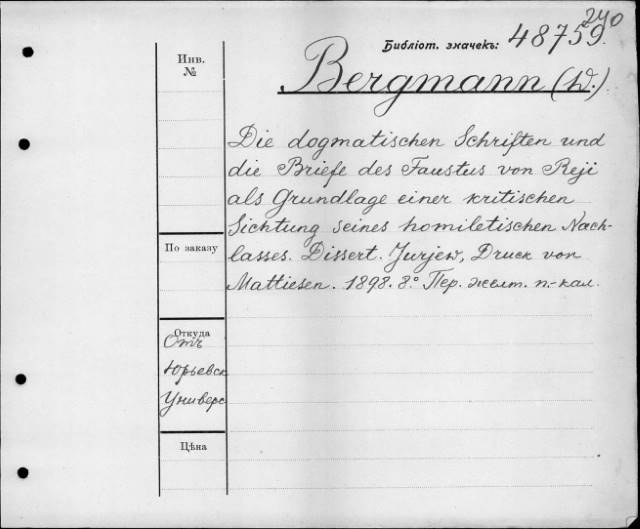 240
Библіот. значекъ: 48759.
Инв.
№
Bergmann (W.)
Die dogmatischen Schriften und
die Briefe des Faustus von Reji
als Grundlage einer kritischen
Sichtung seines homiletischen Nach-
lasses. Dissert. Jurjew, Druck von
Mattiesen. 1898. 8.° Пер. желт. п.-кал.
По заказу
Откуда
Отъ
Юрьевск
Универс
Цѣна